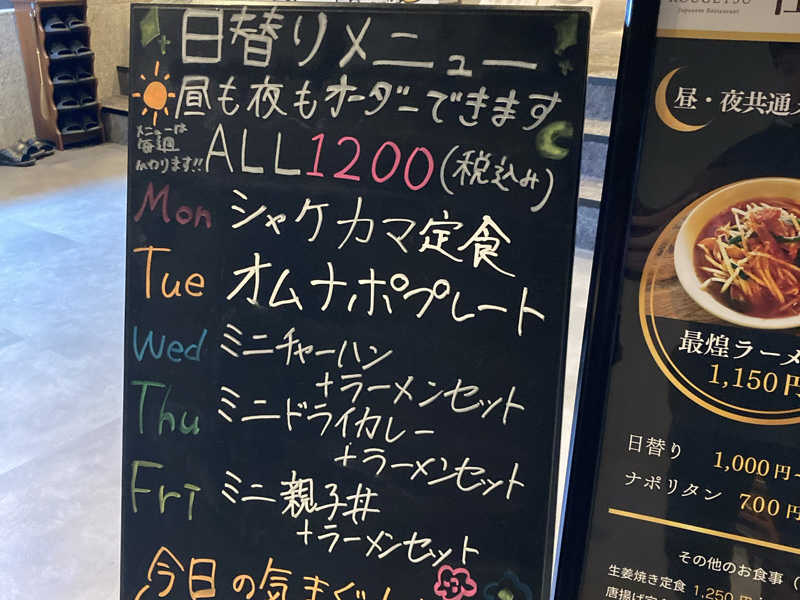 日替りメニュー
昼も夜もオーダーできます
メニューは
毎週
かわります!!
ALL1200(税込み)
Mon シャケカマ定食
Tue オムナポプレート
Wed ミニチャーハン
+ラーメンセット
Thu ミニドライカレー
+ラーメンセット
Fri ミニ親子丼
+ラーメンセット
今日の気まぐ
Japanese Restaurant
昼・夜共通メ
最煌ラーメ
1,150円
日替り 1,000円~
ナポリタン 700円
その他のお食事(
生姜焼き定食 1,250円
唐揚げ定